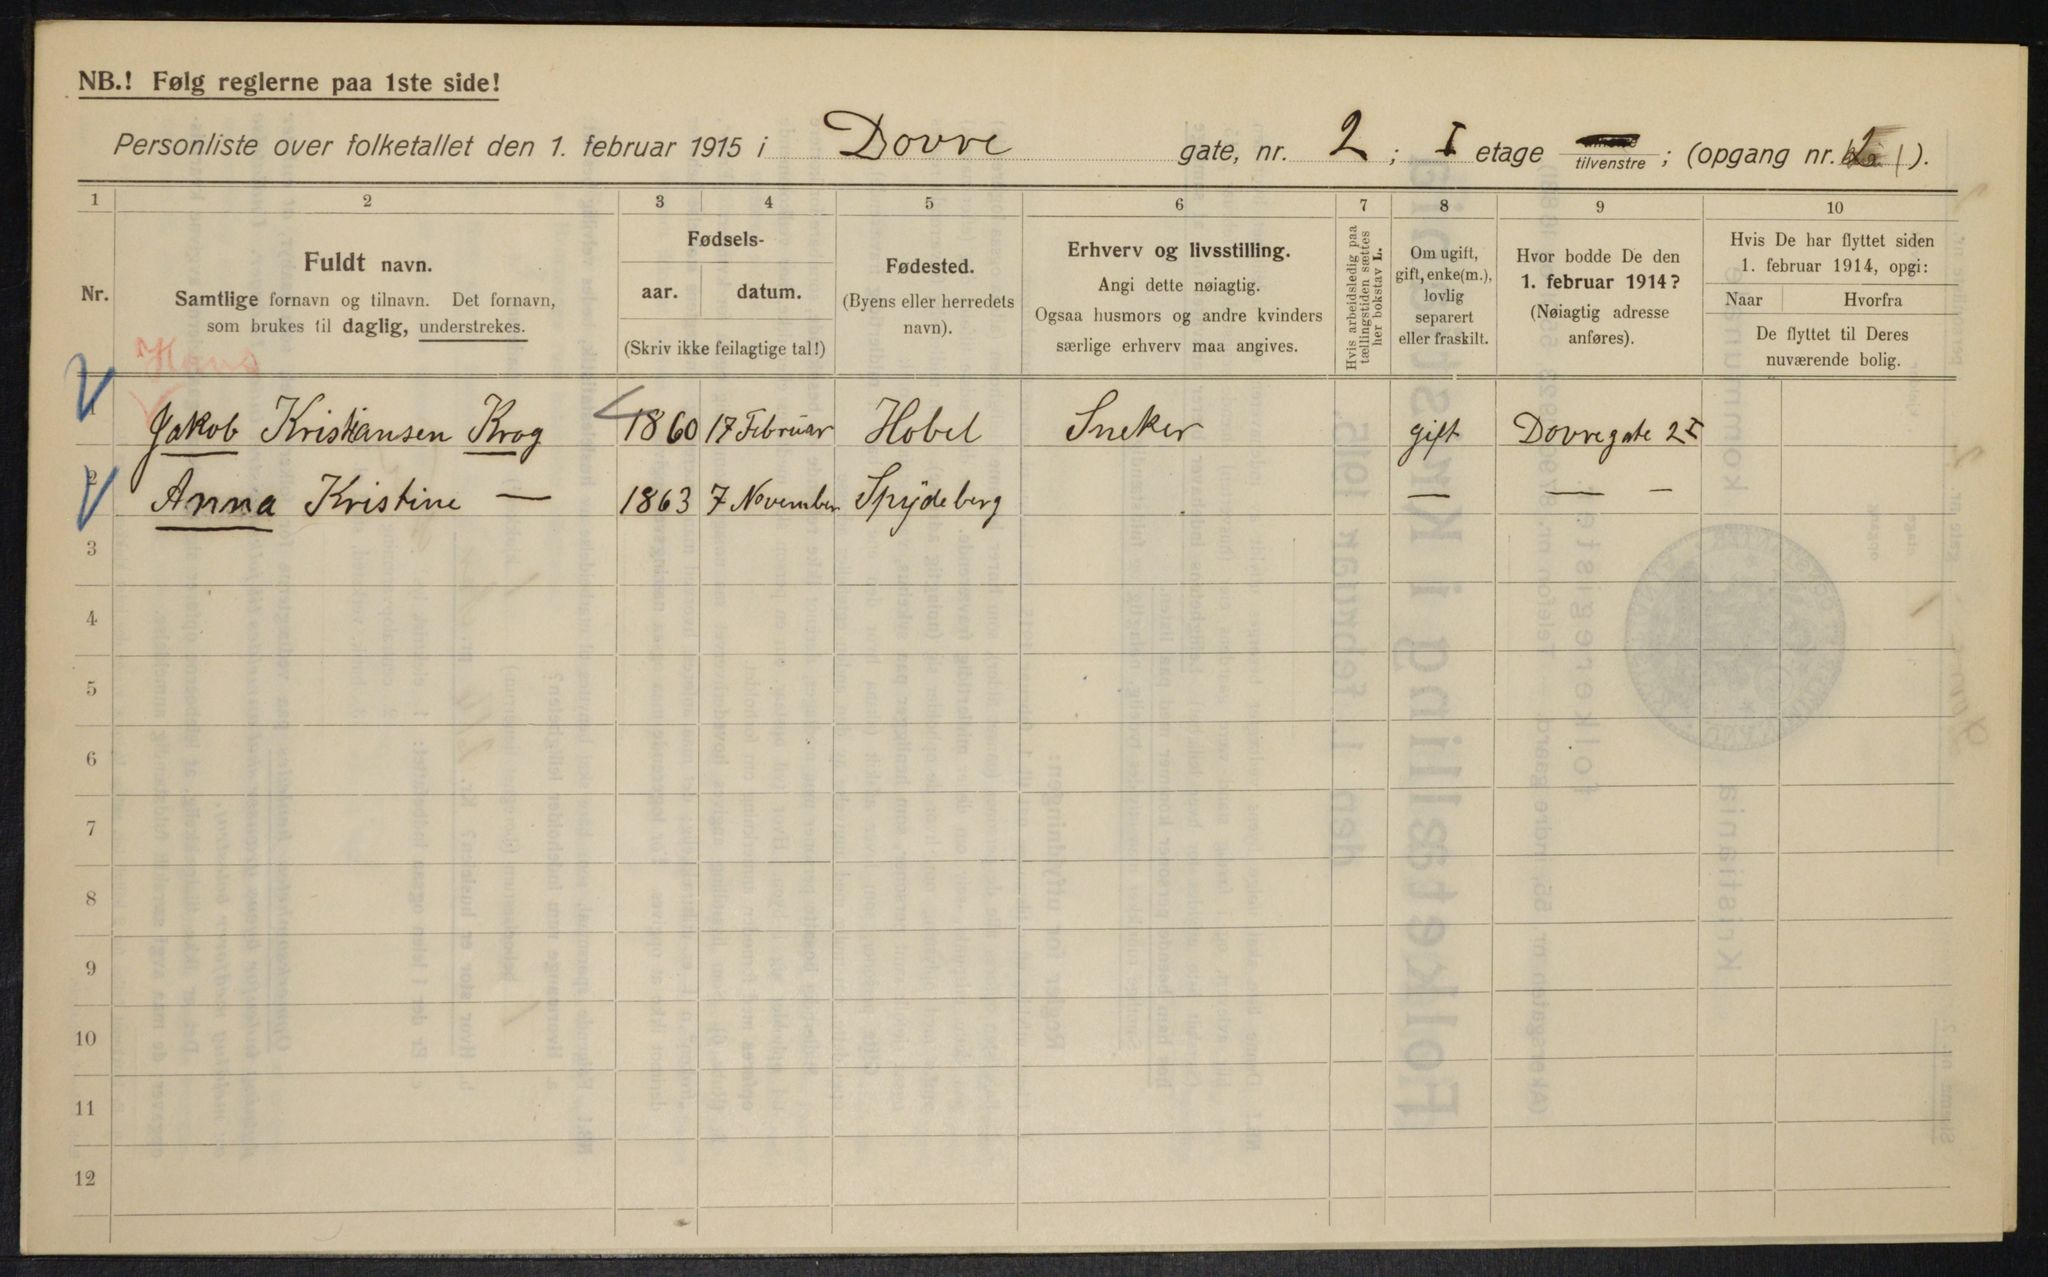 NB.! Følg reglerne paa 1ste side!
Personliste over folketallet den 1. februar 1915 i Dovre gate, nr. 2; I etage tilvenstre; (opgang nr. ).
1 2 3 4 5 6 7 8 9 10
Nr.
Fuldt navn.
Samtlige fornavn og tilnavn. Det fornavn,
som brukes til daglig, understrekes.
Fødsels-
aar. datum.
(Skriv ikke feilagtige tal!)
Fødested.
(Byens eller herredets
navn).
Erhverv og livsstilling.
Angi dette nøiagtig.
Ogsaa husmors og andre kvinders
særlige erhverv maa angives.
Hvis arbeidsledig paa
tællingstiden sættes
her bokstav L.
Om ugift,
gift, enke(m.),
lovlig
separert
eller fraskilt.
Hvor bodde De den
1. februar 1914?
(Nøiagtig adresse
anføres).
Hvis De har flyttet siden
1. februar 1914, opgi:
Naar Hvorfra
De flyttet til Deres
nuværende bolig.
Hans
1 Jakob Kristiansen Krog 1860 17 Februar Hobel Sneker gift Dovregate 2 I
2 Anna Kristine — 1863 7 November Spydeberg — — —
3
4
5
6
7
8
9
10
11
12